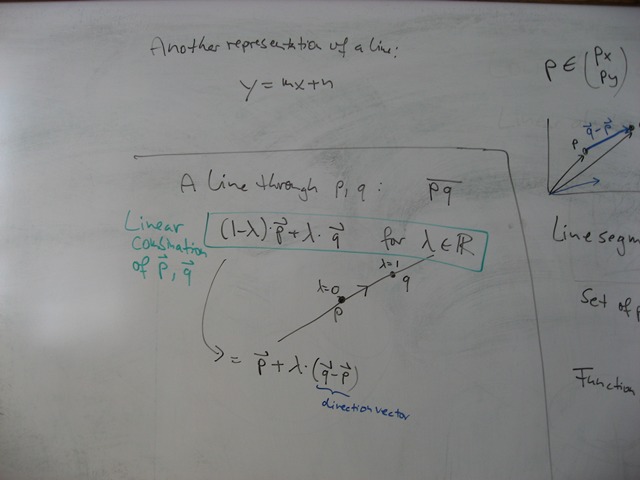 Another representation of a line:
y = mx+n
A line through p, q : p̅q̅
Linear combination of p⃗, q⃗
(1-λ)·p⃗ + λ·q⃗ for λ ∈ ℝ
λ=0
p
λ=1
q
= p⃗ + λ·(q⃗-p⃗)
direction vector
p ∈ (px
py)
q⃗-p⃗
p
Line
Set of
Function